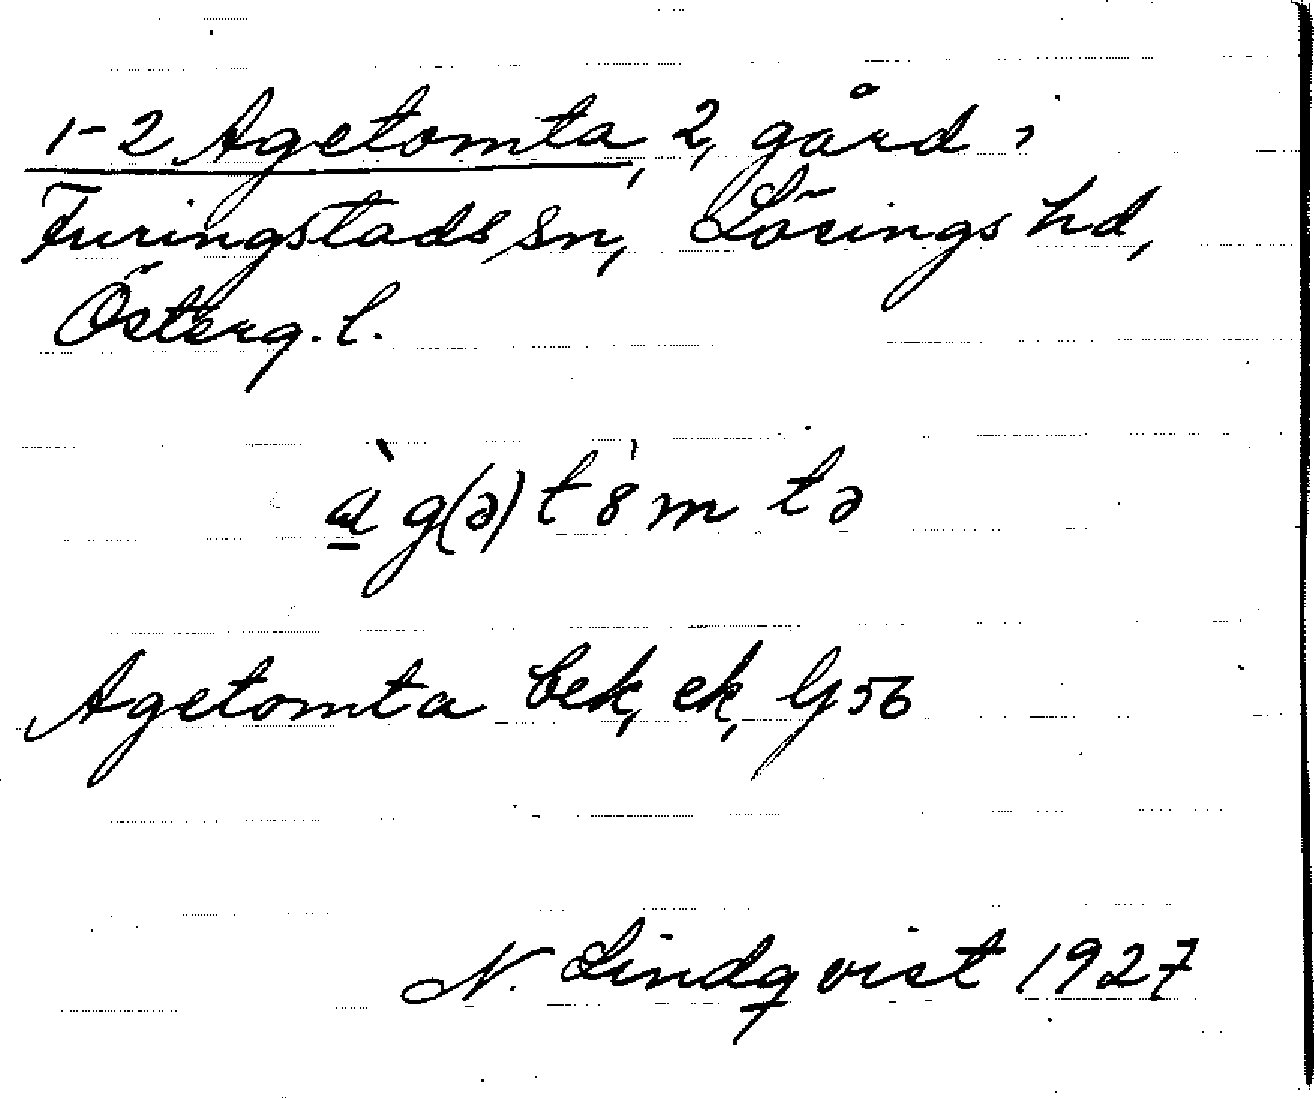 1-2 Agetomta, 2, gård i
Furingstads sn, Lösings hd,
Österg. l.
à g(ə) t 8̍ m t ə
Agetomta bek, ek, G 56
N. Lindqvist 1927